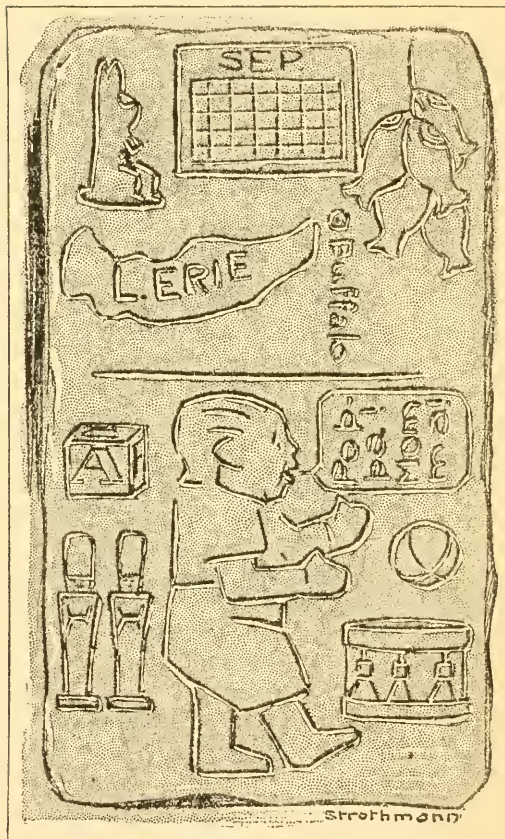 SEP
L. ERIE
Buffalo
A
Strothmann